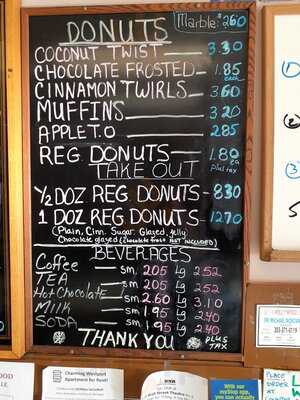 DONUTS
Marble: $2.60
COCONUT TWIST — 3.30
CHOCOLATE FROSTED — 1.85 each
CINNAMON TWIRLS — 3.60
MUFFINS — 3.20
APPLE T.O — 2.85
REG DONUTS — 1.80 ea
plus tax
TAKE OUT
½ DOZ REG DONUTS — 8.30
1 DOZ REG DONUTS — 12.70
(Plain, Cinn. Sugar. Glazed, Jelly
Chocolate glazed (Chocolate frost NOT INCLUDED)
BEVERAGES
Coffee — sm 2.05 Lg 2.52
TEA — sm 2.05 Lg 2.52
Hot Chocolate — sm 2.60 Lg 3.10
MILK — sm 1.95 Lg 2.40
SODA — sm 1.95 Lg 2.40
THANK YOU PLUS TAX
Charming Westport
Apartment for Rent!
With our
PLACE
ORDER
AT